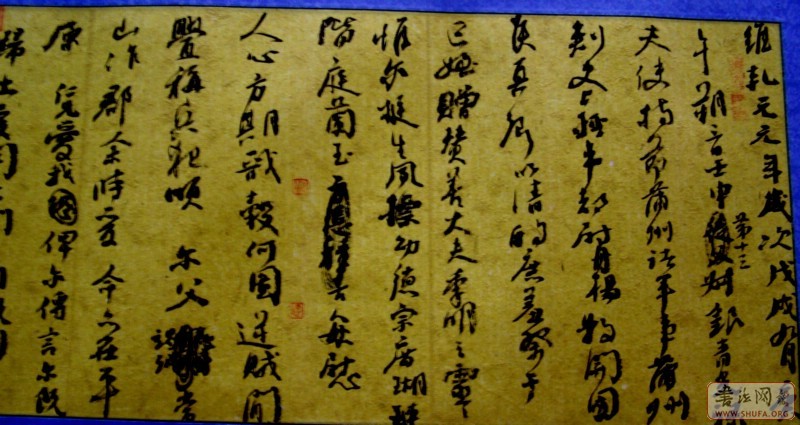 維乾元元年歲次戊戌九月
午朔三日壬申第十三叔銀青光
夫使持節蒲州諸軍事蒲州
刺史上輕車都尉丹楊縣開國
侯真卿以清酌庶羞祭于
亡姪贈贊善大夫季明之靈
惟爾挺生夙標幼德宗廟瑚璉
階庭蘭玉每慰
人心方期戩穀何圖逆賊閒
釁稱兵犯順爾父常
山作郡余時受命亦在平
原仁兄愛我俾爾傳言爾既
歸止爰開土門
書法网
WWW.SHUFA.ORG